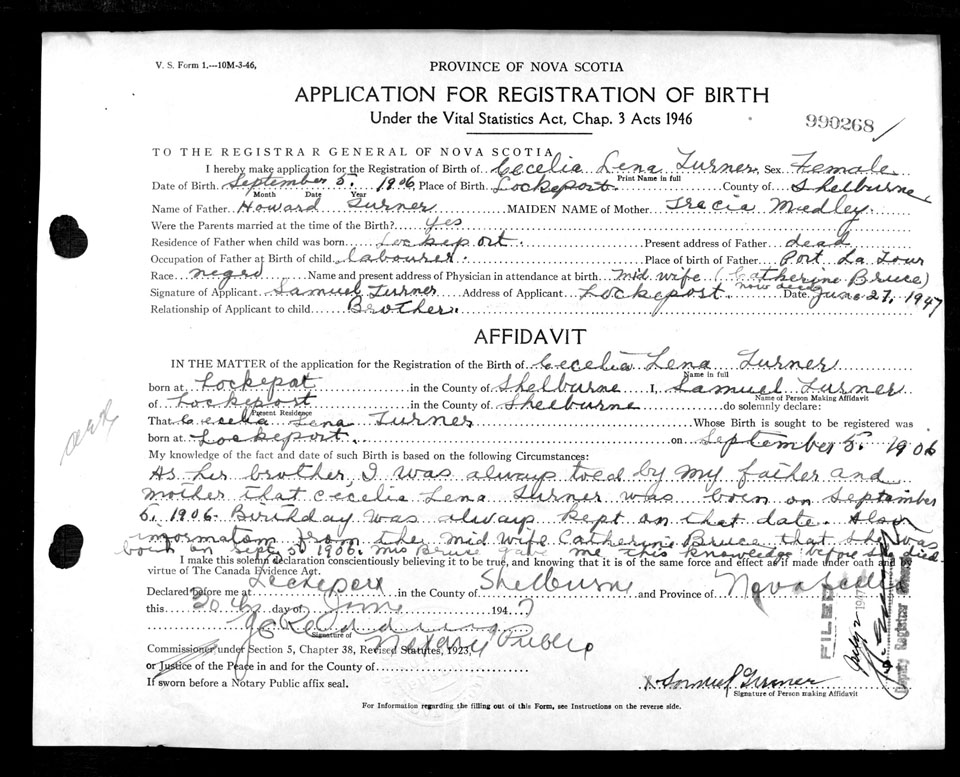 V. S. Form 1.---10M-3-46,
PROVINCE OF NOVA SCOTIA
APPLICATION FOR REGISTRATION OF BIRTH
Under the Vital Statistics Act, Chap. 3 Acts 1946
990268
TO THE REGISTRAR GENERAL OF NOVA SCOTIA
I hereby make application for the Registration of Birth of Cecelia Lena Turner Sex Female
Print Name in full
Date of Birth September 5, 1906 Place of Birth Lockeport County of Shelburne
Month Date Year
Name of Father Howard Turner MAIDEN NAME of Mother Tracia Medley
Were the Parents married at the time of the Birth? yes
Residence of Father when child was born Lockeport Present address of Father dead
Occupation of Father at Birth of child labourer Place of birth of Father Port La Tour
Race negro Name and present address of Physician in attendance at birth mid wife (Catherine Bruce)
now dead
Signature of Applicant Samuel Turner Address of Applicant Lockeport Date June 27, 1947
Relationship of Applicant to child Brother.
AFFIDAVIT
IN THE MATTER of the application for the Registration of the Birth of Cecelia Lena Turner
Name in full
born at Lockepot in the County of Shelburne I, Samuel Turner
Name of Person Making Affidavit
of Lockeport in the County of Shelburne do solemnly declare:
Present Residence
That Cecelia Lena Turner Whose Birth is sought to be registered was
born at Lockeport. on September 5, 1906
My knowledge of the fact and date of such Birth is based on the following Circumstances:
As her brother, I was always toed by my father and
mother that Cecelia Lena Turner was born on September
5, 1906. Birthday was always kept on that date. Also
informatom from the mid wife Catherine Bruce that she was
born on Sept 5 1906. Mrs Bruce gave me this knowledge before she died.
I make this solemn declaration conscientiously believing it to be true, and knowing that it is of the same force and effect as if made under oath and by
virtue of The Canada Evidence Act.
Declared before me at Lockeport in the County of Shelburne and Province of Nova Scotia
this 30th day of June 1947
Signature of
Notary Public
Commissioner under Section 5, Chapter 38, Revised Statutes, 1923,
or Justice of the Peace in and for the County of
If sworn before a Notary Public affix seal.
X Samuel Turner
Signature of Person making Affidavit
FILED
July 2 1947
Deputy Registrar General
For Information regarding the filling out of this Form, see Instructions on the reverse side.